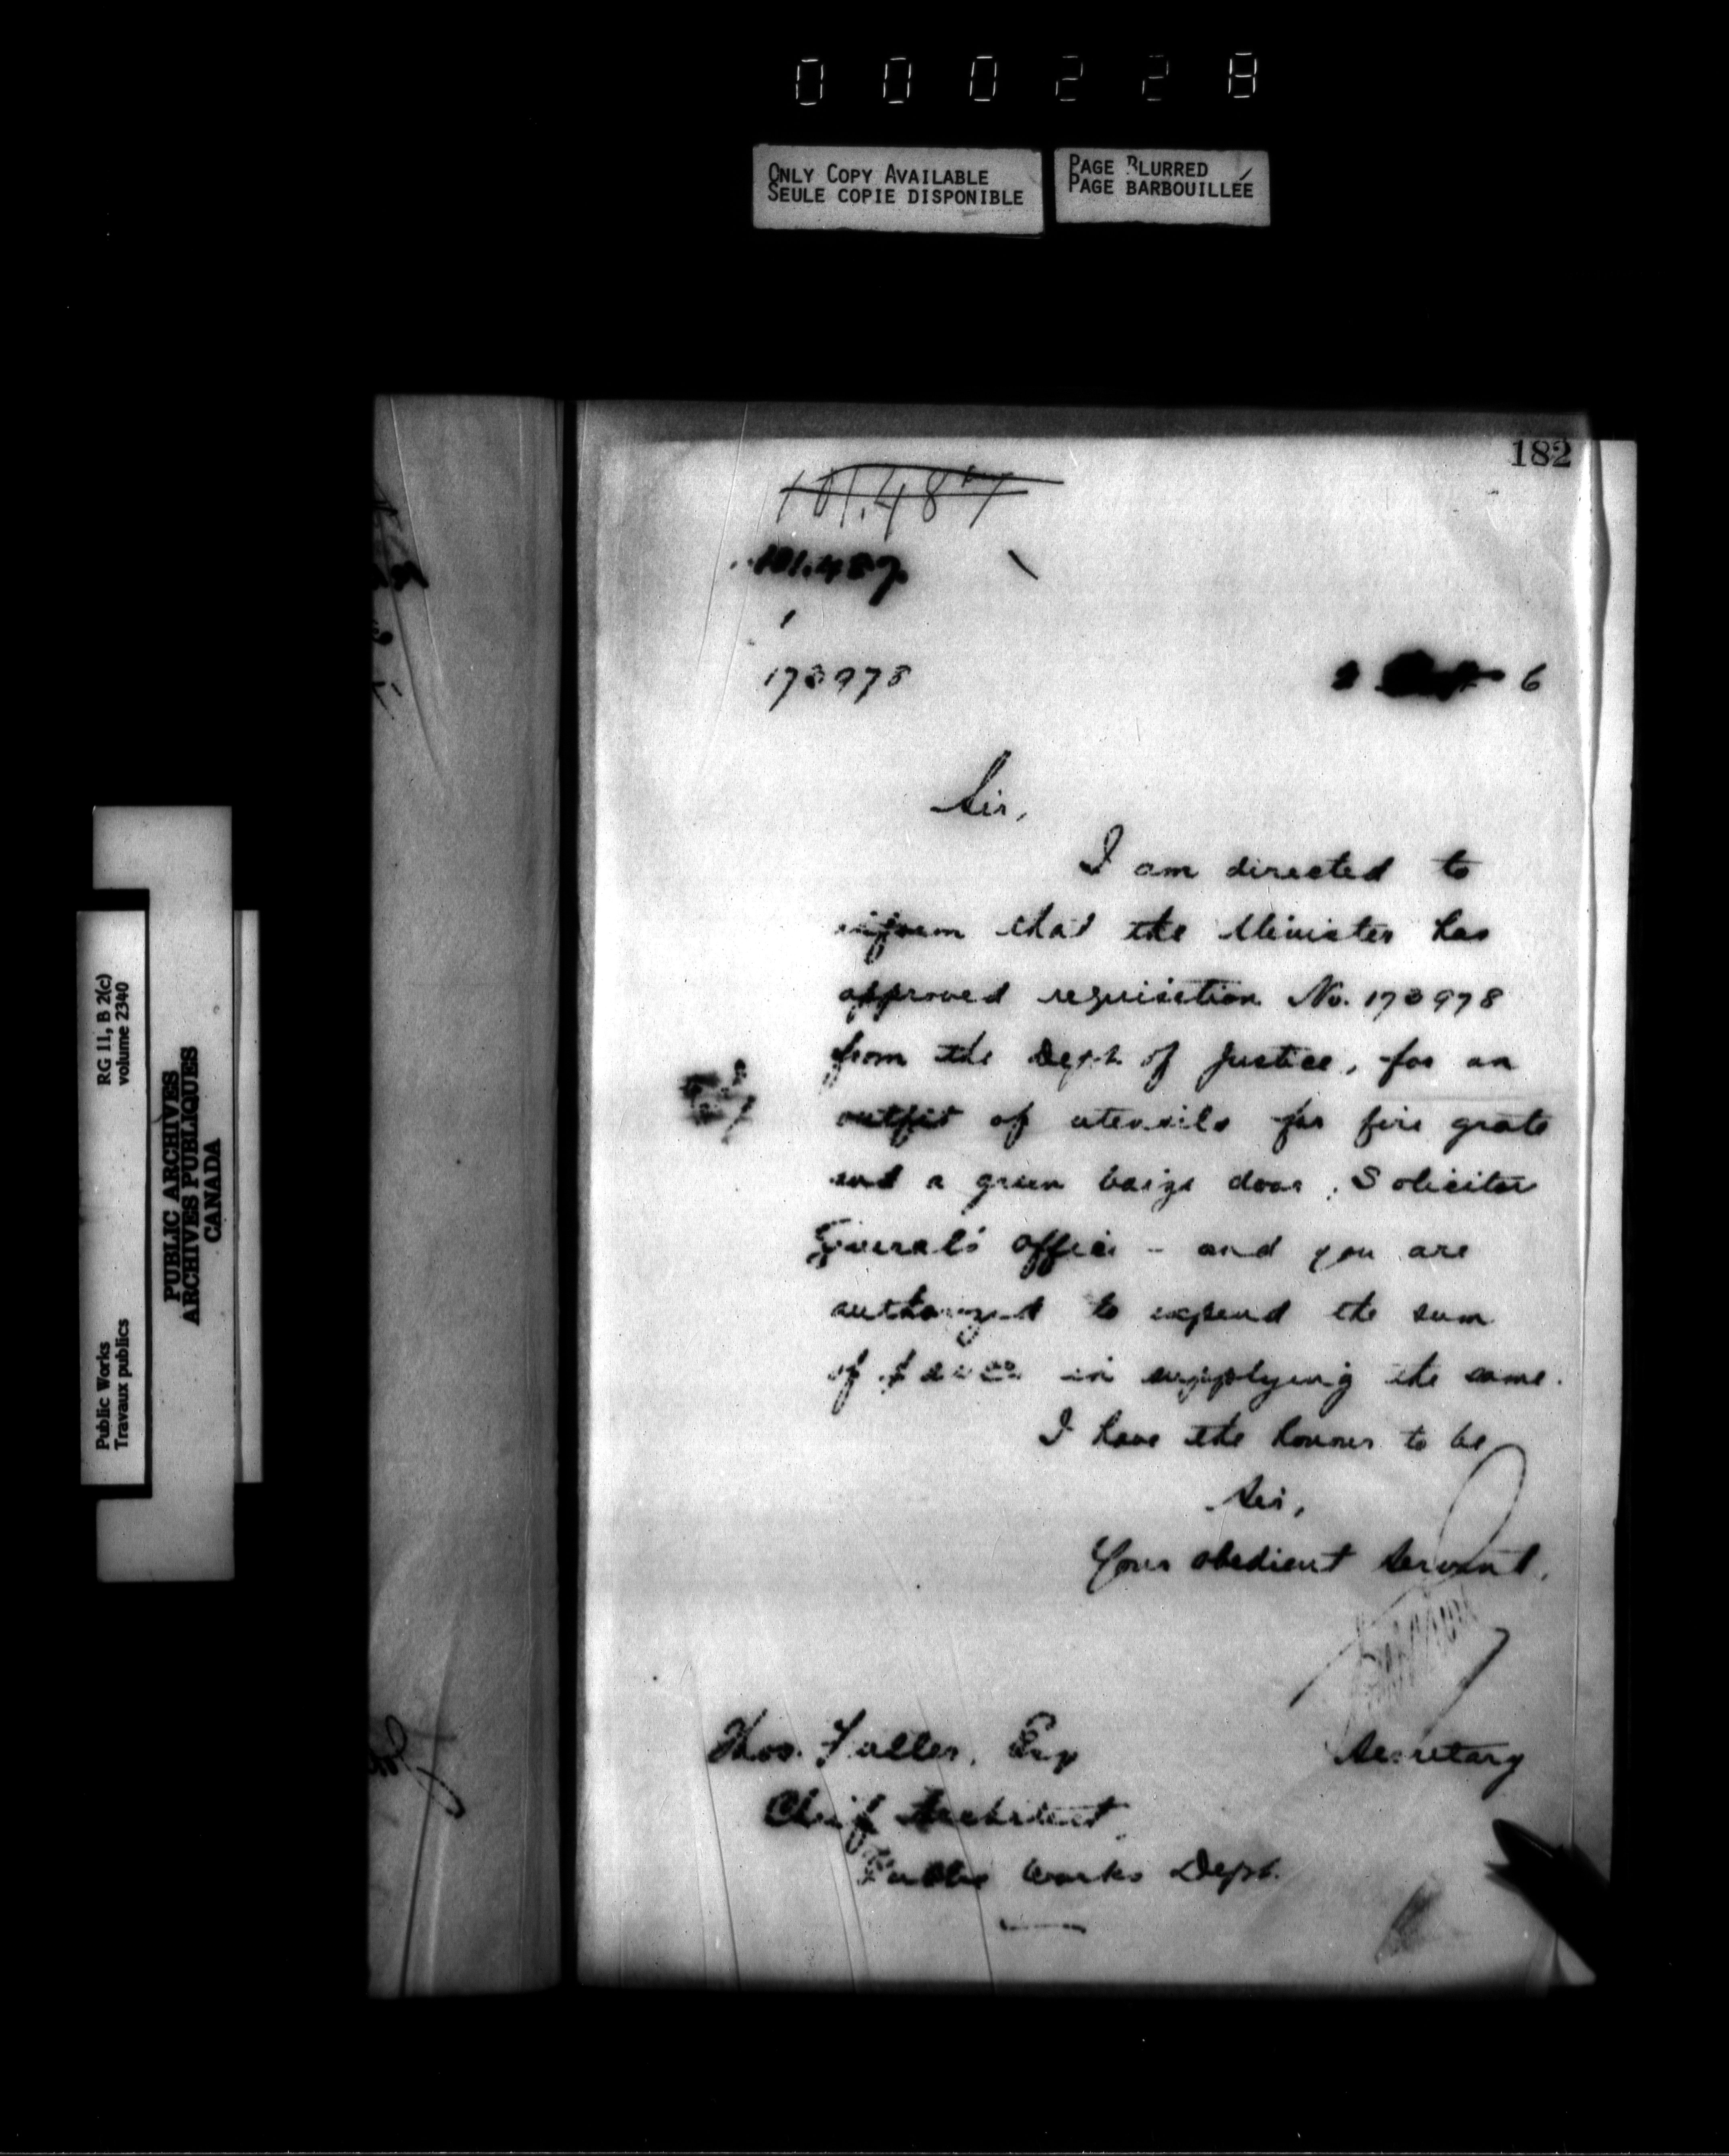 000228
ONLY COPY AVAILABLE
SEULE COPIE DISPONIBLE
PAGE BLURRED
PAGE BARBOUILLÉE
182
101.487
101.487
1
173978
6
Sir,
I am directed to
inform that the Minister has
approved requisition No. 173978
from the Dept. of Justice, for an
outfit of utensils for fire grate
and a green baize door, Solicitor
General's office - and you are
authorized to expend the sum
of $ in supplying the same.
I have the honour to be
Sir,
Your obedient servant,
Thos. Fuller, Esq
Secretary
Chief Architect
Public Works Dept.
RG 11, B 2(c)
volume 2340
Public Works
Travaux publics
PUBLIC ARCHIVES
ARCHIVES PUBLIQUES
CANADA